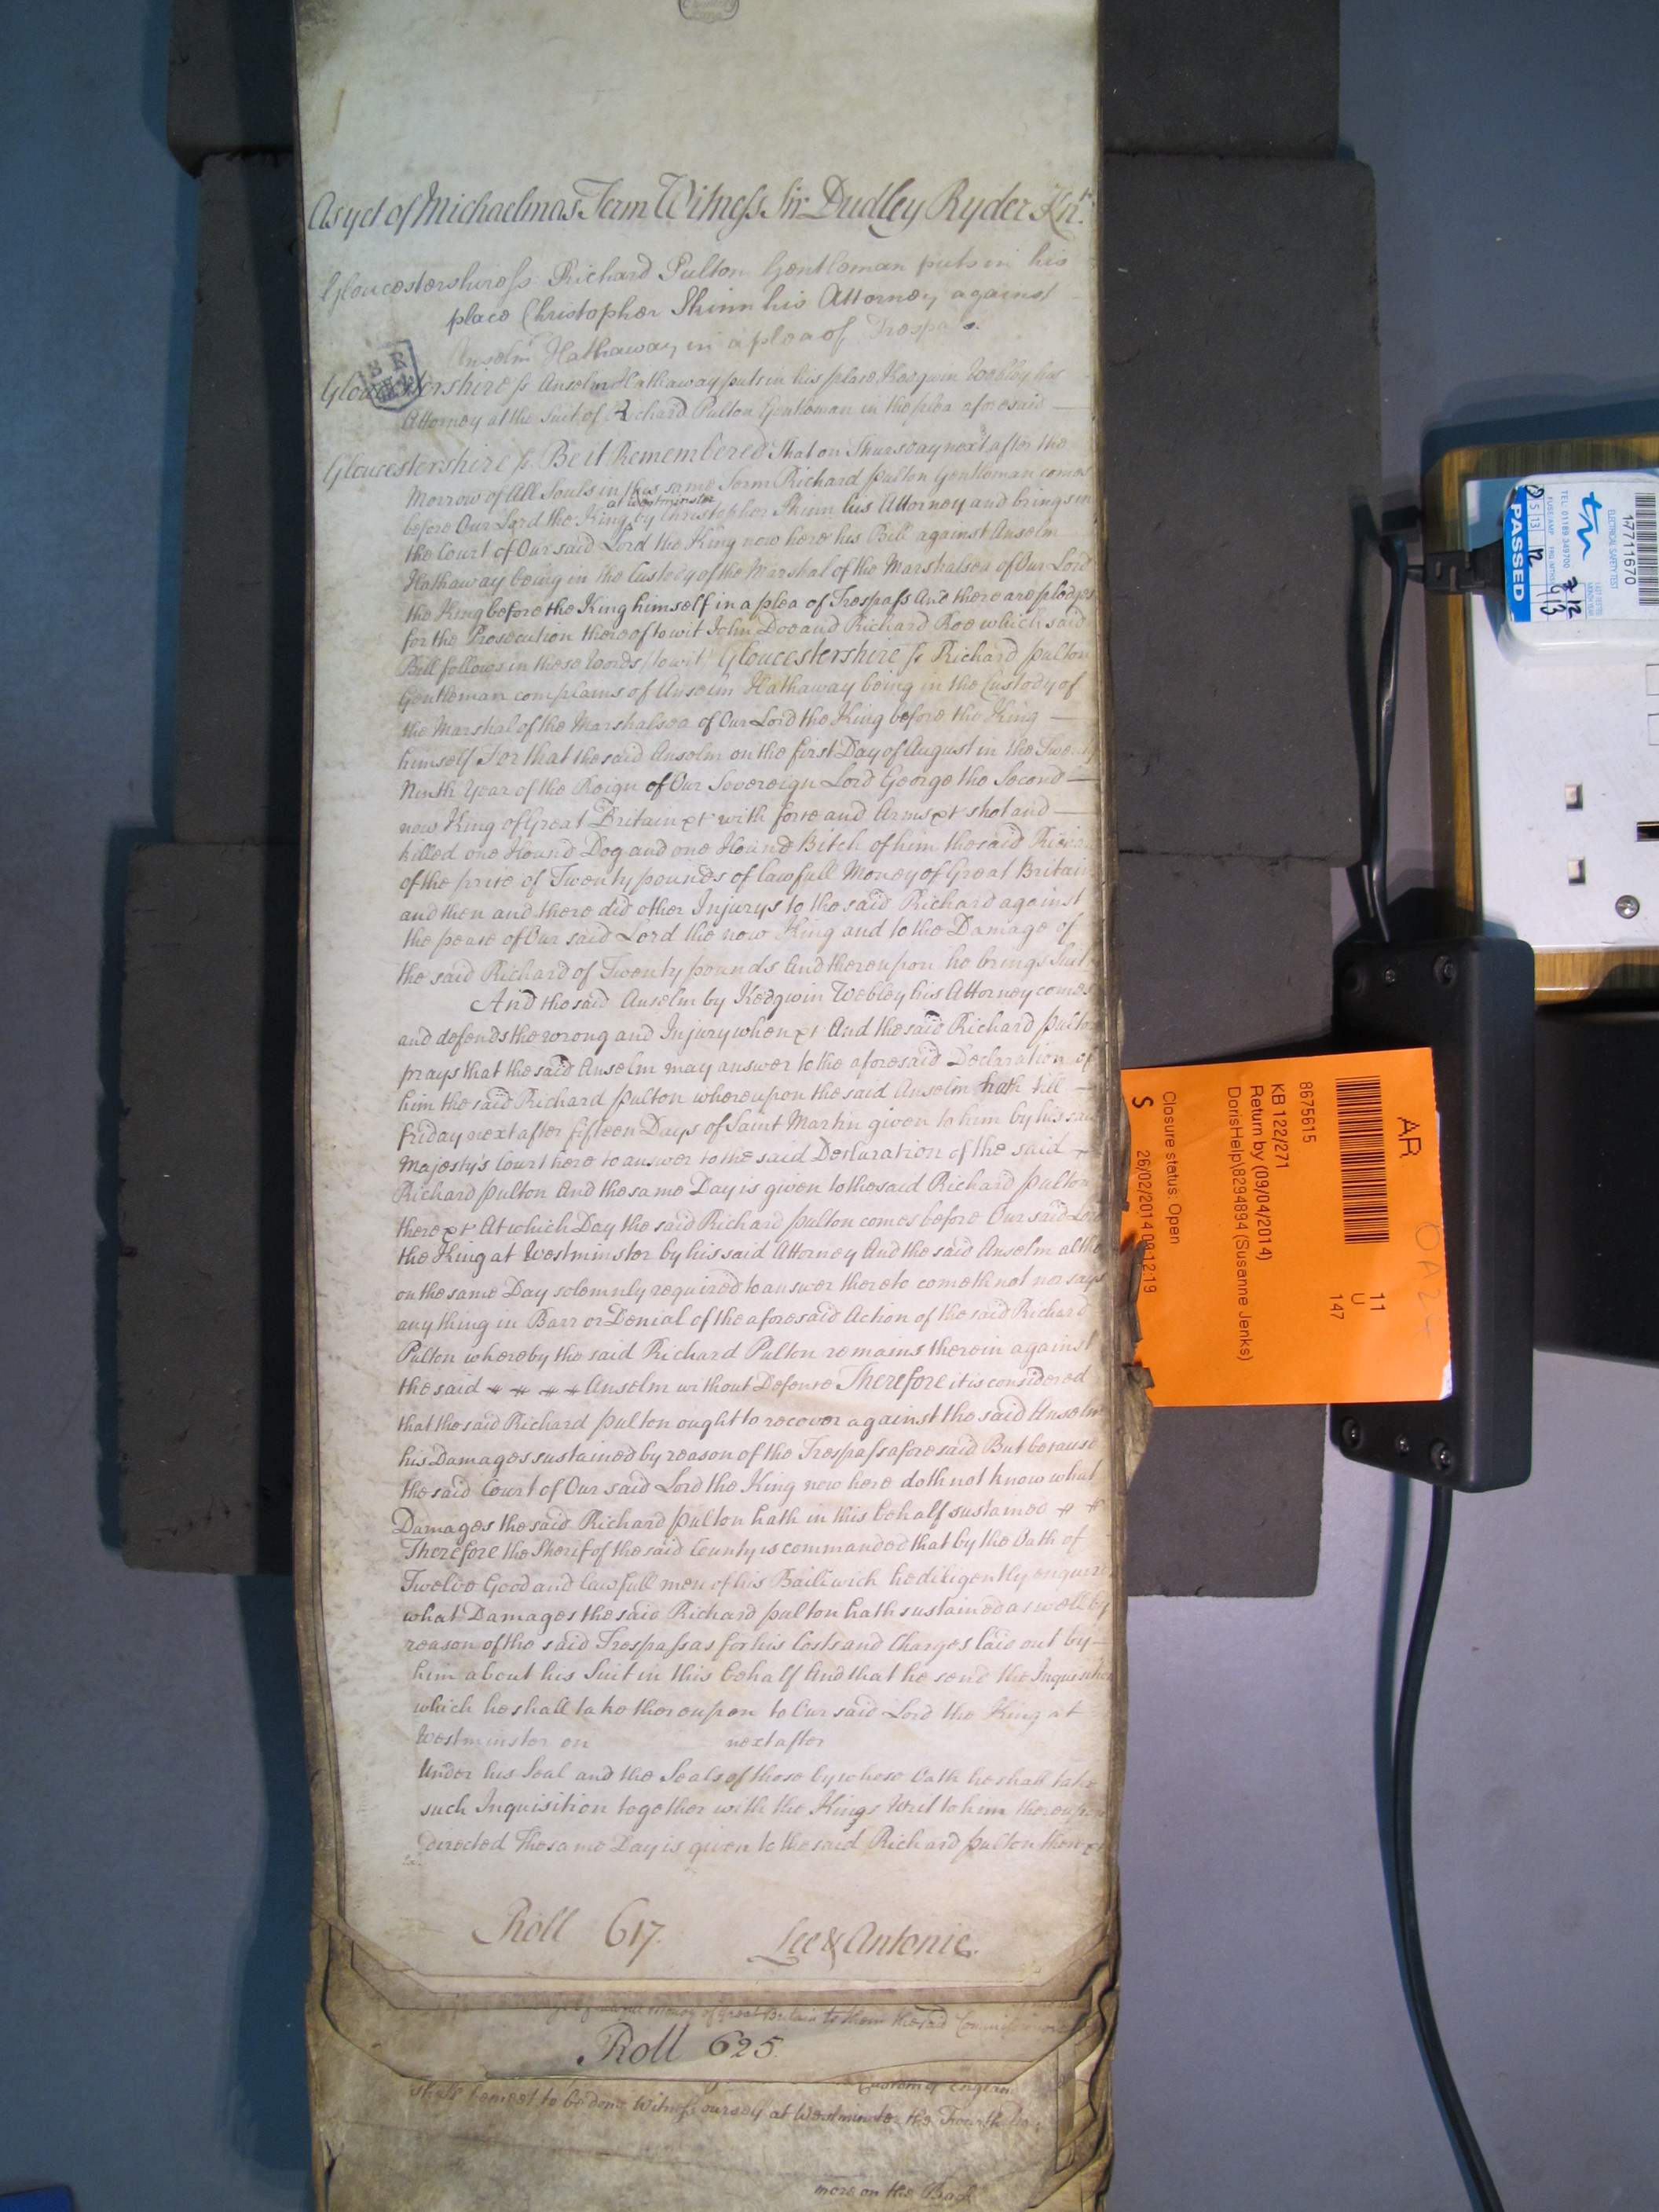 As yet of Michaelmas Term Witness Sir Dudley Ryder Knt.
Gloucestershire ss Richard Pulton Gentleman puts in his
place Christopher Skinn his Attorney against
Anselm Hathaway in a plea of Trespass.
Gloucestershire ss Anselm Hathaway puts in his place Kedgwin Webley his
Attorney at the suit of Richard Pulton Gentleman in the plea aforesaid
Gloucestershire ss Be it Remembered that on Thursday next after the
Morrow of All Souls in this same Term Richard Pulton Gentleman comes
before Our Lord the King at Westminster by Christopher Skinn his Attorney and brings in
the Court of Our said Lord the King now here his Bill against Anselm
Hathaway being in the Custody of the Marshal of the Marshalsea of Our Lord
the King before the King himself in a plea of Trespass And there are pledges
for the Prosecution thereof to wit John Doe and Richard Roe which said
Bill follows in these Words (to wit) Gloucestershire ss Richard Pulton
Gentleman complains of Anselm Hathaway being in the Custody of
the Marshal of the Marshalsea of Our Lord the King before the King
himself For that the said Anselm on the first Day of August in the Twenty
Ninth Year of the Reign of Our Sovereign Lord George the Second
now King of Great Britain &c with force and Arms &c shot and
killed one Hound Dog and one Hound Bitch of him the said Richard
of the price of Twenty pounds of lawfull Money of Great Britain
and then and there did other Injurys to the said Richard against
the peace of Our said Lord the now King and to the Damage of
the said Richard of Twenty pounds And thereupon he brings Suit
And the said Anselm by Kedgwin Webley his Attorney comes
and defends the wrong and Injury when &c And the said Richard Pulton
prays that the said Anselm may answer to the aforesaid Declaration of
him the said Richard Pulton whereupon the said Anselm hath till
Friday next after fifteen Days of Saint Martin given to him by his said
Majesty's Court here to answer to the said Declaration of the said
Richard Pulton And the same Day is given to the said Richard Pulton
there &c At which Day the said Richard Pulton comes before Our said Lord
the King at Westminster by his said Attorney And the said Anselm altho
on the same Day solemnly required to answer thereto cometh not nor says
any thing in Barr or Denial of the aforesaid Action of the said Richard
Pulton whereby the said Richard Pulton remains therein against
the said # # # # Anselm without Defense Therefore it is considered
that the said Richard Pulton ought to recover against the said Anselm
his Damages sustained by reason of the Trespass aforesaid But because
the said Court of Our said Lord the King now here doth not know what
Damages the said Richard Pulton hath in this behalf sustained # #
Therefore the Sherif of the said County is commanded that by the Oath of
Twelve Good and lawfull men of his Bailiwick he diligently enquire
what Damages the said Richard Pulton hath sustained as well by
reason of the said Trespass as for his Costs and Charges laid out by
him about his Suit in this behalf And that he send the Inquisition
which he shall take thereupon to Our said Lord the King at
Westminster on next after
Under his Seal and the Seals of those by whose Oath he shall take
such Inquisition together with the Kings Writ to him thereupon
directed The same Day is given to the said Richard Pulton there &c
Roll 617.
Lee & Antonie.
Money of Great Britain to them the said
Roll 625
Custom of
shall be meet to be done Witness ourself at Westminster the
more on the Back
AR
OA24
11
U
147
8675615
KB 122/271
Return by (09/04/2014)
DorisHelp\8294894 (Susanne Jenks)
Closure status: Open
S
26/02/2014 09:12:19
1771670
ELECTRICAL SAFETY TEST
TEL: 01189 349700
PASSED